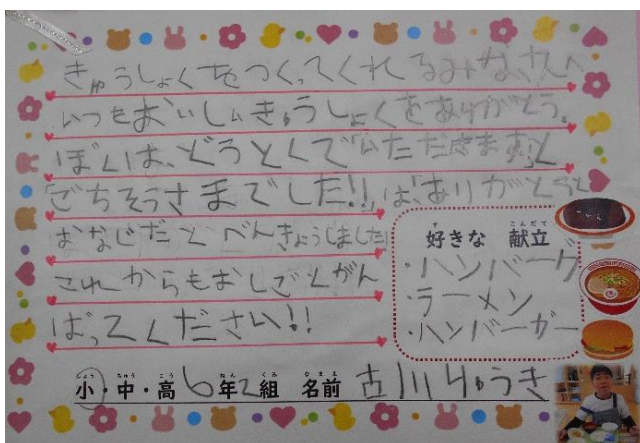 きゅうしょくをつくってくれるみなさんへ
いつもおいしいきゅうしょくをありがとう。
ぼくは、どうとくで「いただきます」と
「ごちそうさまでした!!」は、「ありがとう」と
おなじだとべんきょうしました。
これからもおしごとがん
ばってください!!
好きな 献立
す こんだて
・ハンバーグ
・ラーメン
・ハンバーガー
しょう ちゅう こう ねん くみ なまえ
小・中・高 6年2組 名前 古川りゅうき